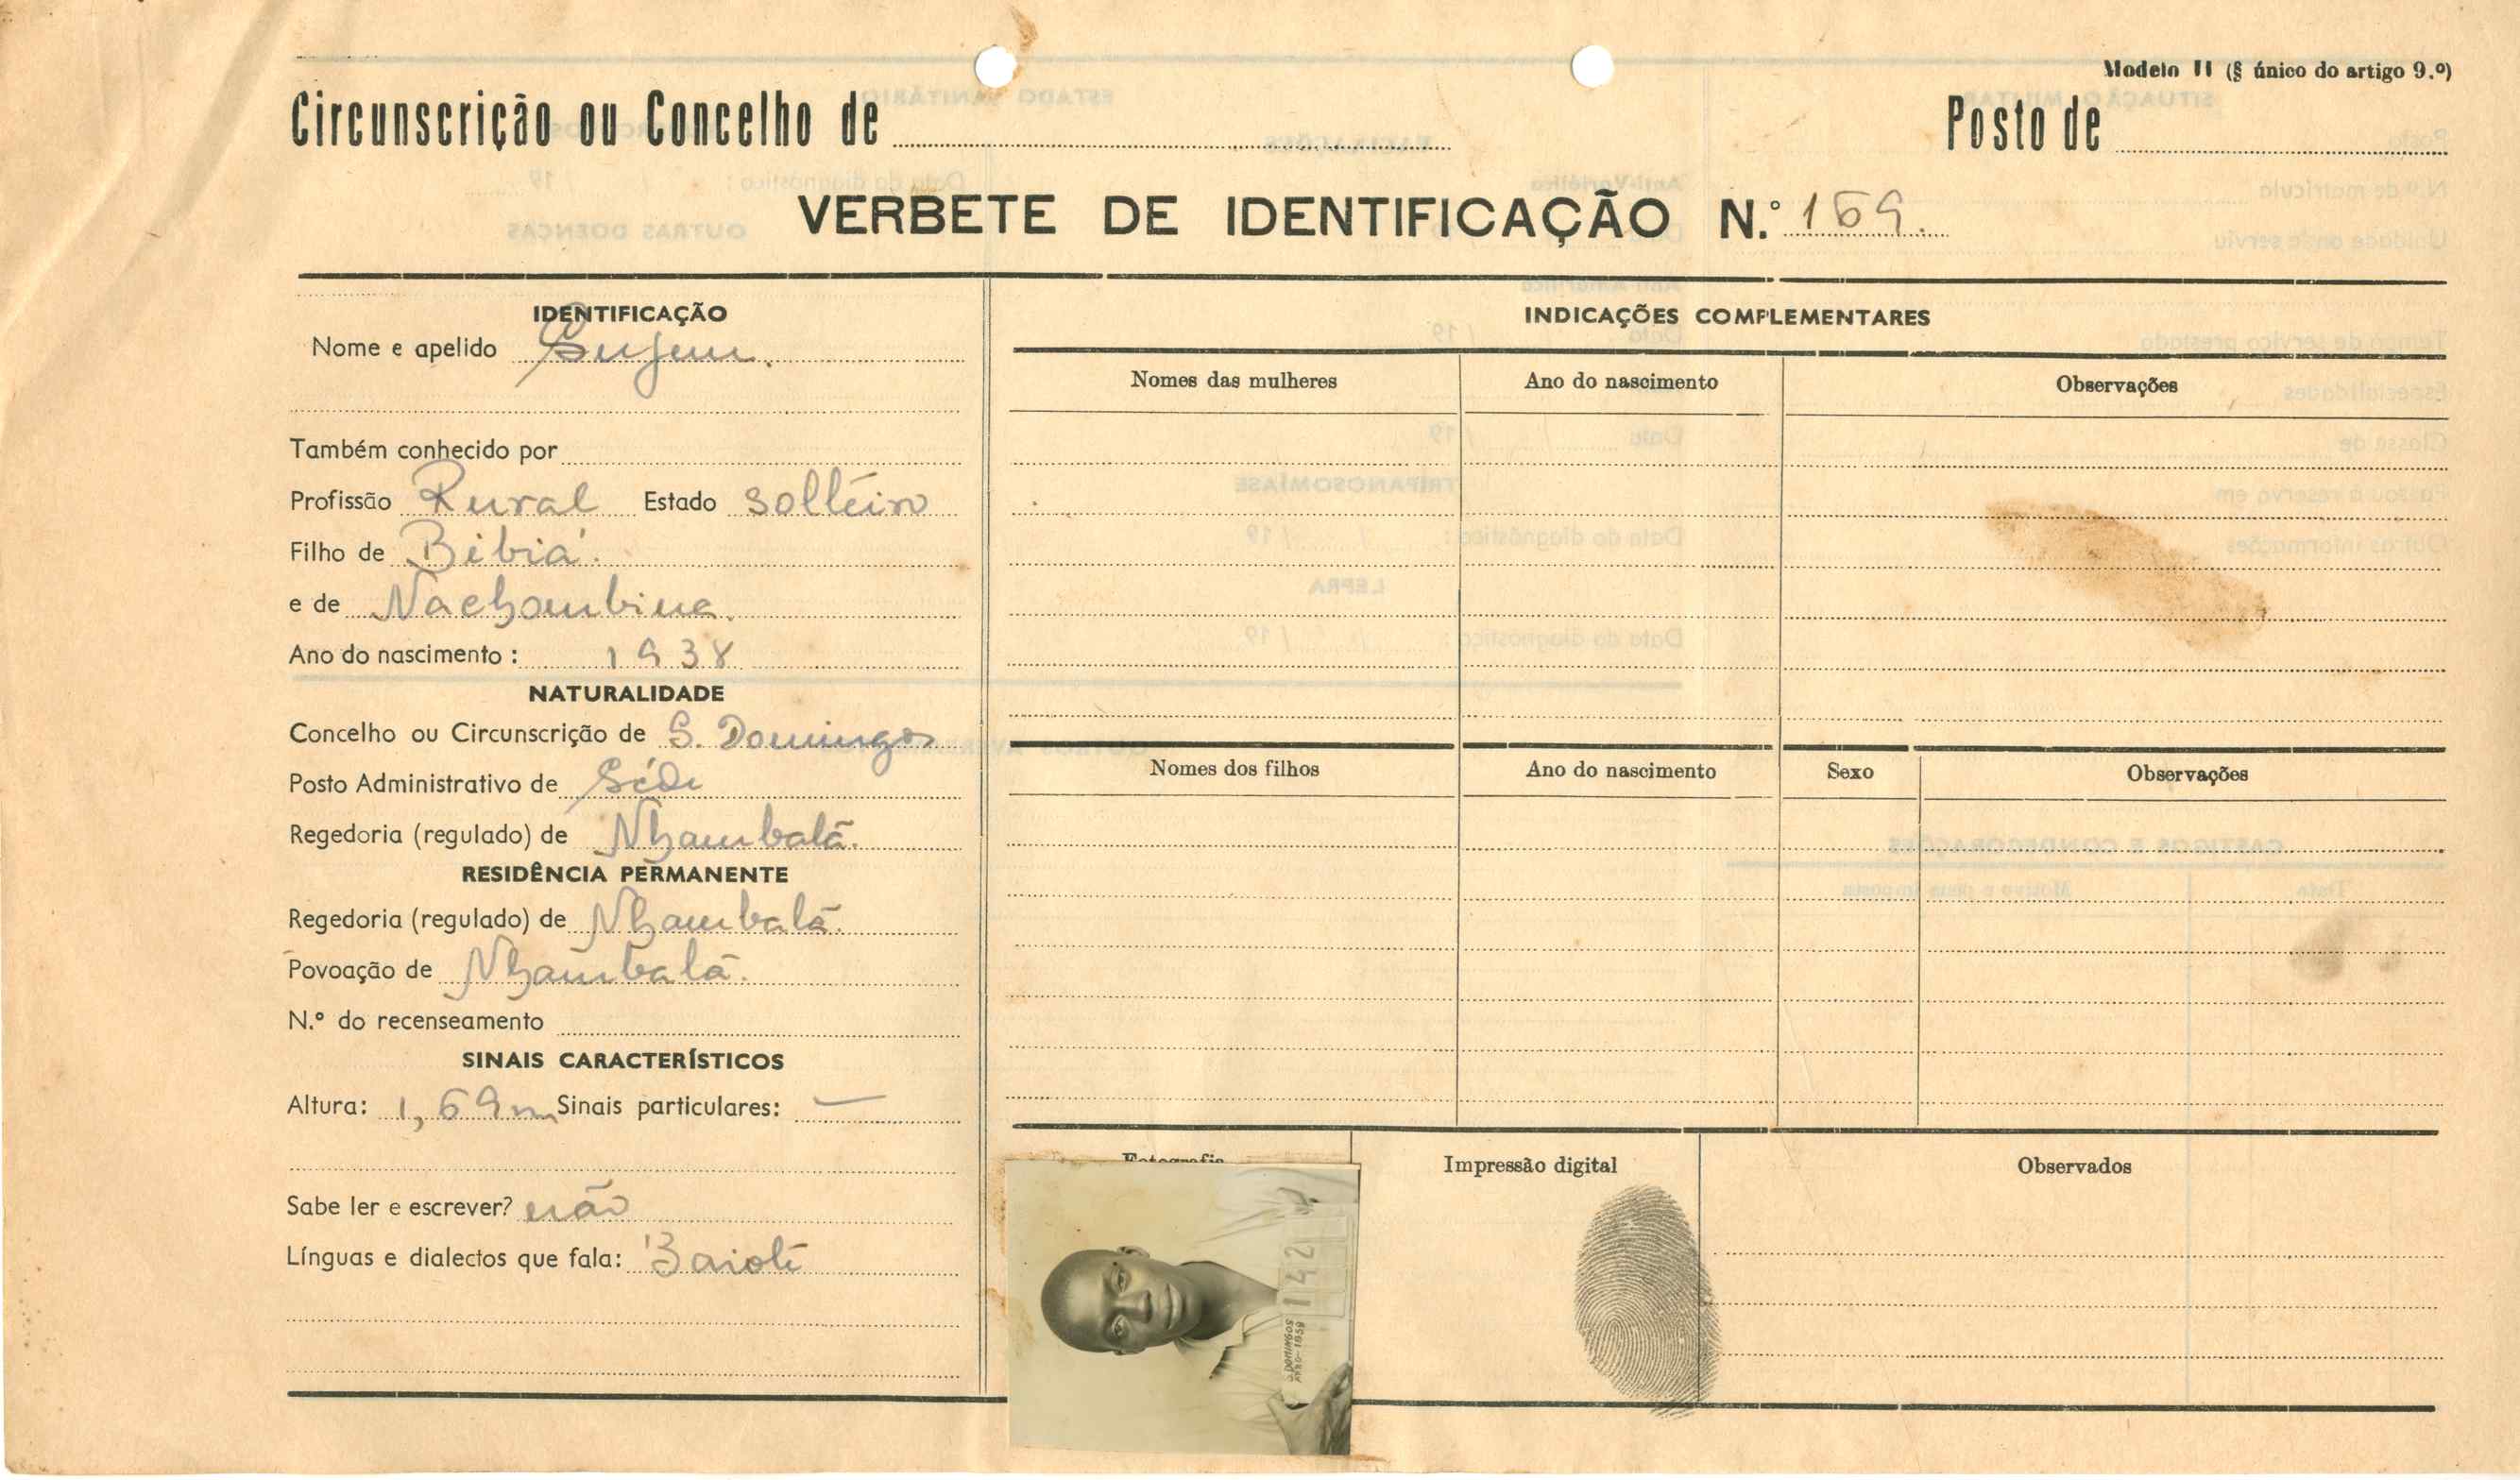 Modelo II (§ único do artigo 9.º)
Circunscrição ou Concelho de
Posto de
VERBETE DE IDENTIFICAÇÃO N.º 169.
IDENTIFICAÇÃO
Nome e apelido
Também conhecido por
Profissão Rural Estado solteiro
Filho de Bibiá.
e de Nachambina.
Ano do nascimento: 1938
NATURALIDADE
Concelho ou Circunscrição de S. Domingos
Posto Administrativo de Séde
Regedoria (regulado) de Nhambalã.
RESIDÊNCIA PERMANENTE
Regedoria (regulado) de Nhambalã.
Povoação de Nhambalã.
N.º do recenseamento
SINAIS CARACTERÍSTICOS
Altura: 1,69m Sinais particulares: —
Sabe ler e escrever? não
Línguas e dialectos que fala: Baiote
INDICAÇÕES COMPLEMENTARES
Nomes das mulheres Ano do nascimento Observações
Nomes dos filhos Ano do nascimento Sexo Observações
Fotografia Impressão digital Observados
142
S.DOMINGOS
ANO-1959